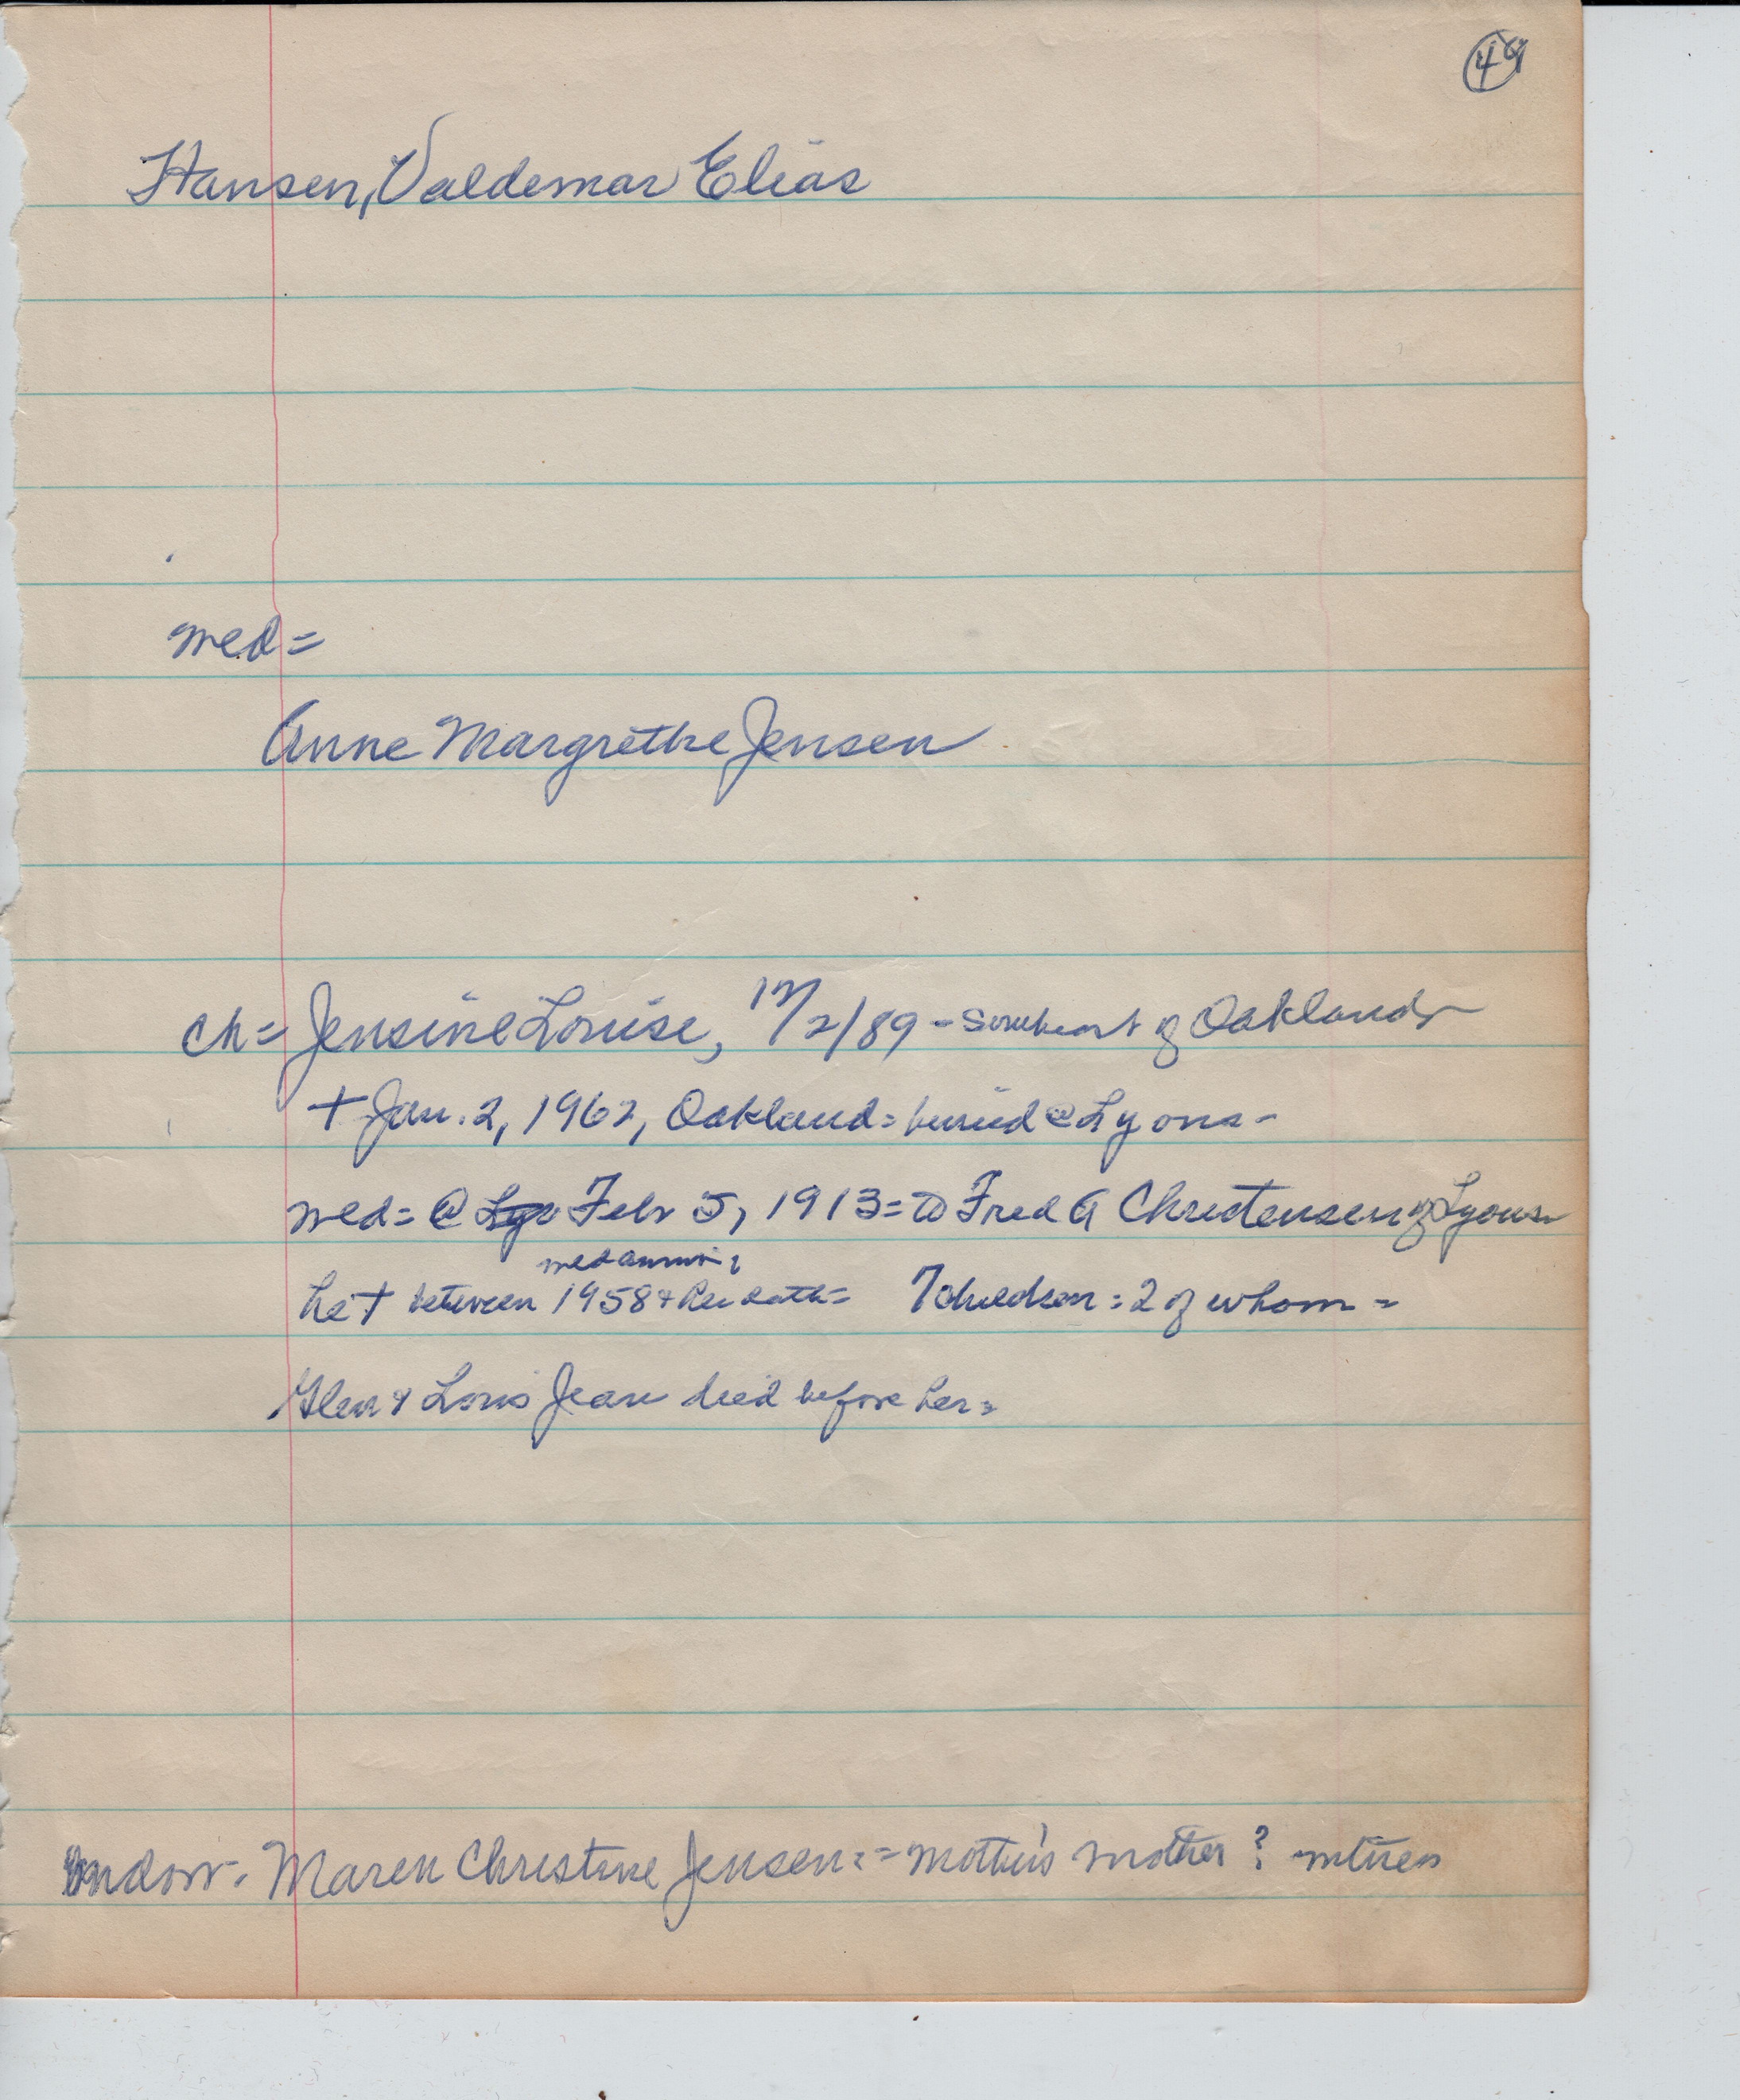 49
Hansen, Valdemar Elias
wed=
Anne Margrethe Jensen
ch= Jensine Louise, 17/2/89 - southeast of Oakland
+ Jan. 2, 1962, Oakland = buried @ Lyons -
wed = @ Feb 5, 1913 = to Fred A Christensen of Lyons
wed anniv
he + between 1958 & her death = 7 children = 2 of whom =
Glen & Lois Jean died before her =
Maren Christine Jensen = mother's mother?